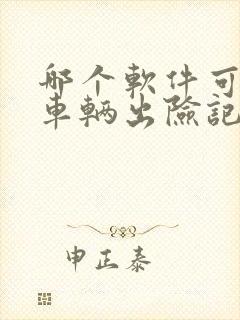 哪个軟件可
車輌出險記
申正泰